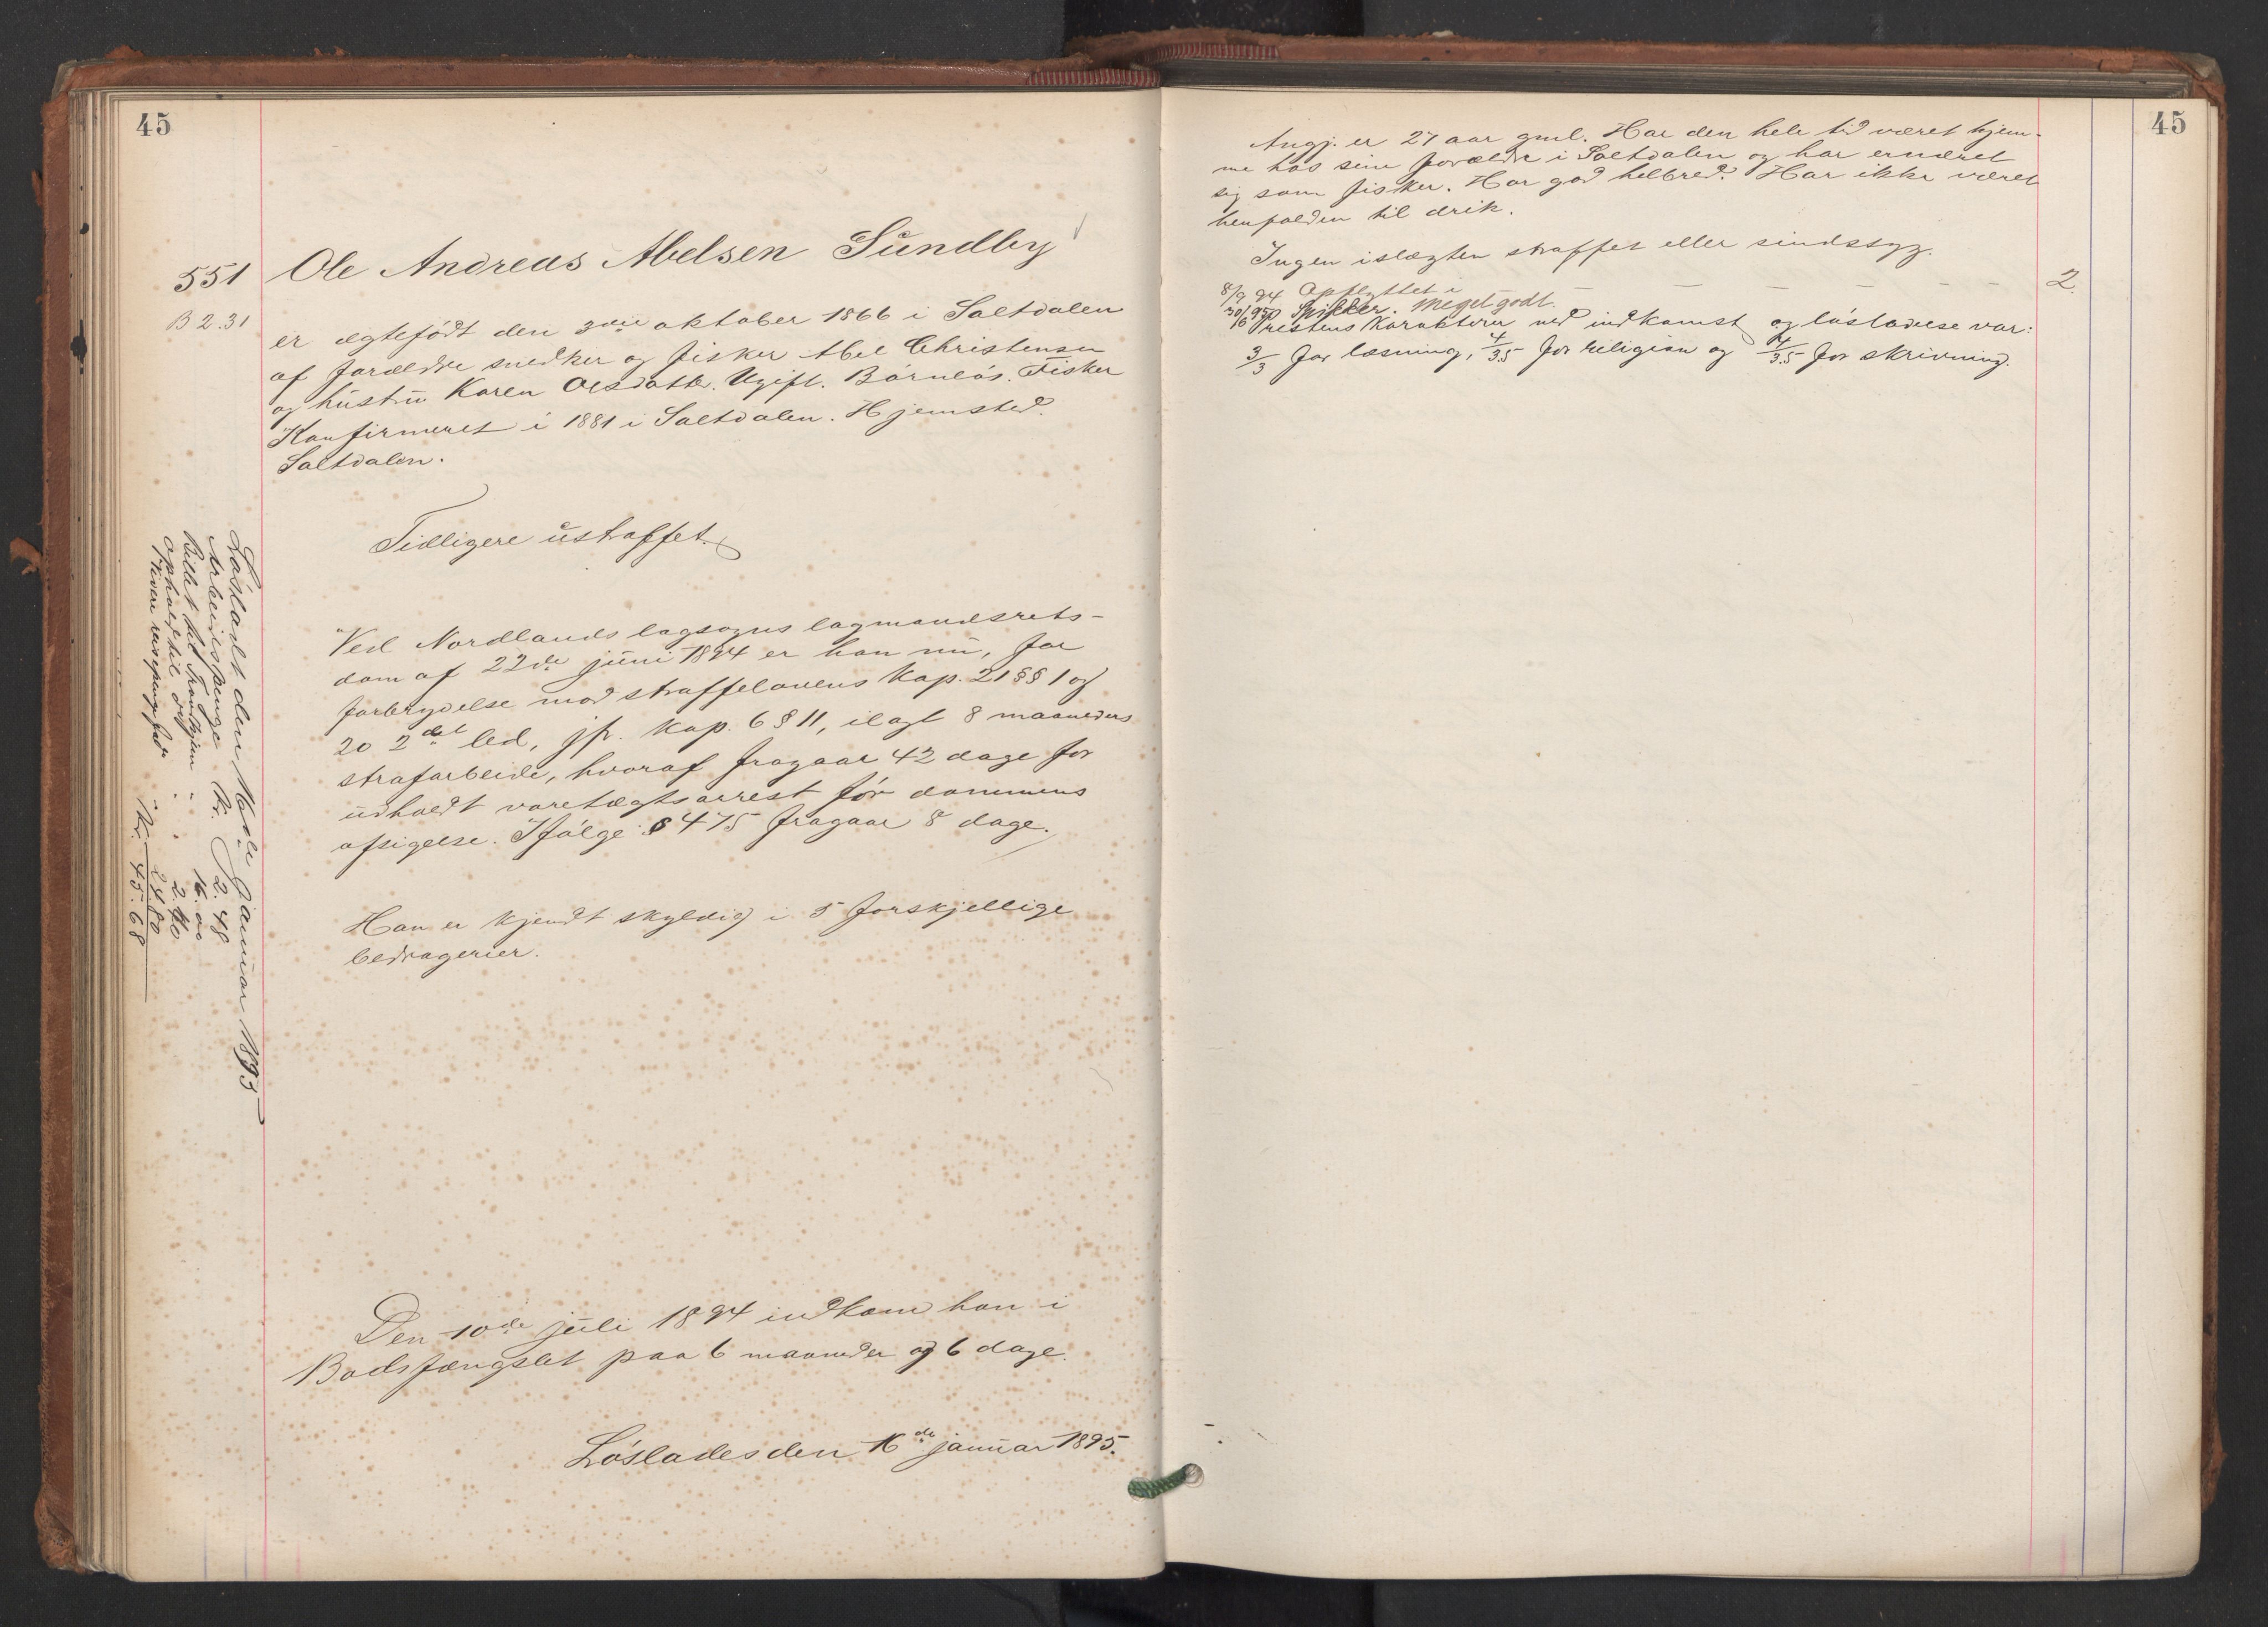 45
551
B 2.31
Ole Andreas Abelsen Sundby
er ægtefödt den 3die oktober 1866 i Saltdalen
af forældre snedker og fisker Abel Christensen
og hustru Karen Olsdatter. Ugift. Börnelös. Fisker
Konfirmeret i 1881 i Saltdalen. Hjemsted.
Saltdalen.
Tidligere ustraffet.
Ved Nordlands lagsogns lagmandsrets-
dom af 22de juni 1894 er han nu, for
forbrydelse mod straffelovens Kap. 21 §§ 1 og
20 2det led, jfr. Kap. 6 § 11, ilagt 8 maaneders
strafarbeide, hvoraf fragaar 42 dage for
udholdt varetægtsarrest för dommens
afsigelse. Ifölge § 475 fragaar 8 dage.
Han er kjendt skyldig i 5 forskjellige
bedragerier.
Den 10de juli 1894 indkom han i
Bodsfængslet paa 6 maaneder og 6 dage.
Löslades den 16de januar 1895.
Lösladt den 16de januar 1895
Arbeidspenge Kr. 2.48
Billet til Trondhjem " 16.00
Ophold til do " 2.40
Kr. 45.68
45
Angj. er 27 aar gml. Har den hele tid været hjem-
me hos sine forældre i Saltdalen og har ernæret
sig som fisker. Har god helbred. Har ikke været
henfalden til drik.
Ingen i slægten straffet eller sindssyg.
8/9 94 Opflyttet i — — — — — — 2.
Meget godt.
Prestens Karakterer ved indkomst og löslatelse var:
3/3 for læsning, 4/3.5 for religion og 4/3.5 for skrivning.